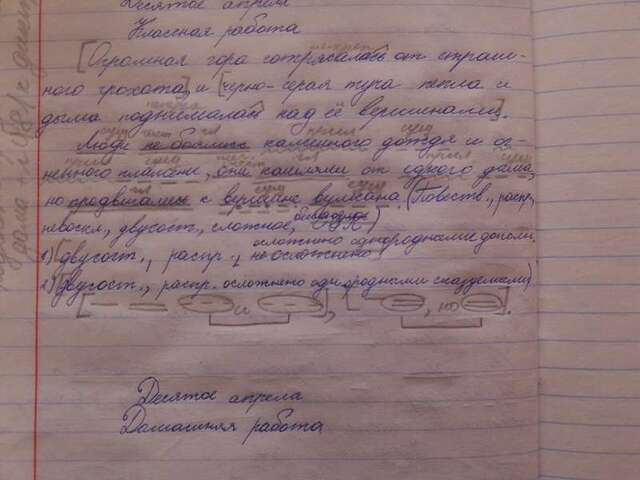 Десятое апреля
Классная работа
[Огромная гора сотрясалась от страш-
ного грохота], и [черно-серая туча пепла и
дыма поднималась над её вершинами].
Люди не боялись каменного дождя и ог-
ненного пламени, они кашляли от едкого дыма,
но продвигались к вершине вулкана. (Повеств., распр.,
невоскл., двусост., сложное,
осложнено однородными дополн.
1) [двусост., распр., не осложнено
2) [двусост., распр. осложнено однородными сказуемыми)
[ и ], [ , но ].
Десятое апреля
Домашняя работа